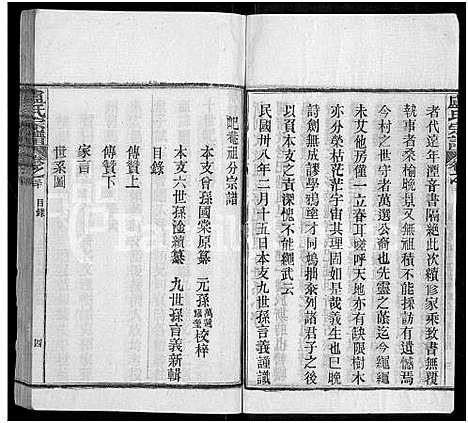 盧氏宗譜
者代遠年湮音書隔絕此次續修家乘無覆
執事者桑榆晚景又無祖積不能有猷為焉
今村之世守者萬選公裔也先靈之蔭迄今繩繩
未艾他房僅一立春耳嗟呼天地亦有缺限樹木
亦分榮枯茫茫宇宙其理固如是哉義生也巳晚
詩劍無成謬學鴉塗才同鳩拙忝列諸君子之後
以賁本支之資深愧不能繩武云
民國卅八年二月十五日本支九世孫言義謹識
記菴祖分宗譜
本支曾孫國棠原纂 元孫 校梓
本支六世孫 續纂 九世孫言義新輯
目錄
傳贊上
傳贊下
家言
世系圖
盧氏宗譜 卷之 目錄 四